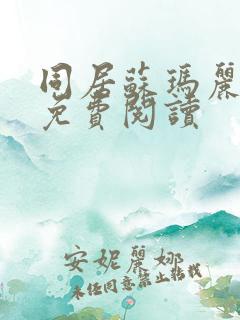 同居蘇瑪麗
免費閱讀
安妮麗娜
未經同意禁止轉載